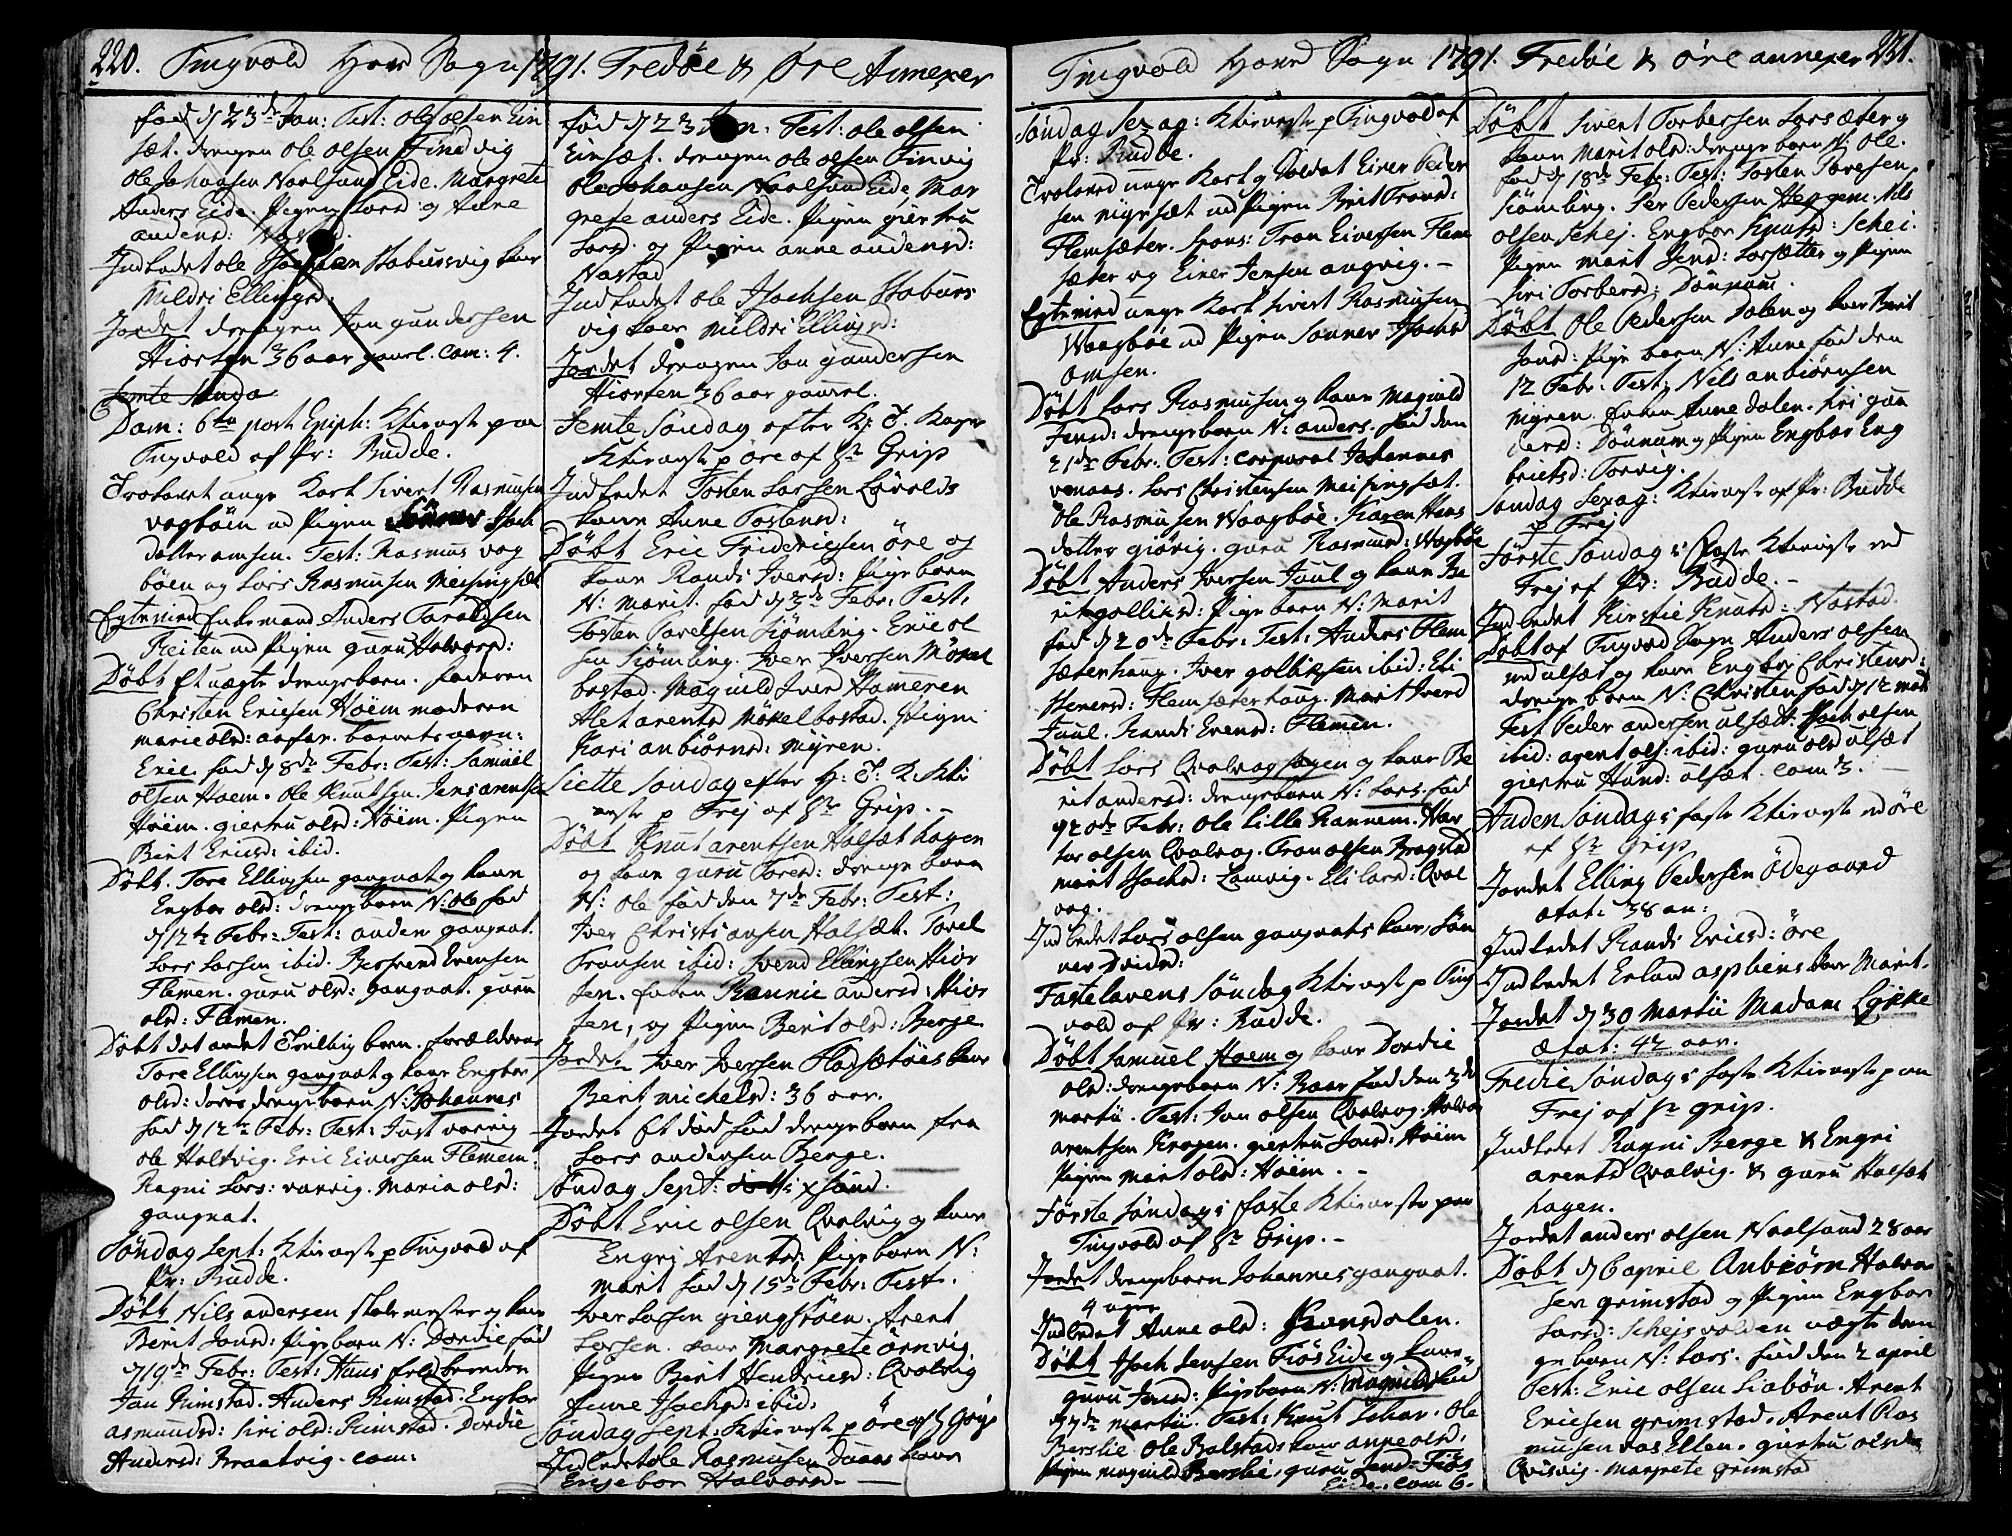 220. Tingvold Hoved Sogn 1791. Fredøe & Øre Annexer
fød d 23de Jan: Test: Ole Olsen Ein
sæt. drengen Ole Olsen Findvig
Ole Johansen Naalsund Eide. Margrete
Anders Eide. Pigen Lorsd: og Anne
andersd: Nastad.
Indledet Ole Isachsen Stabursvig kaar
Mildri Ellingsd:
Jordet drengen Jon Gundersen
Hiorten 36 aar gaml. com: 4.
Femte Sunda
Dom: 6te post Epiph: Ktieneste paa
Tingvold af Pr: Budde.
Trolovet unge Karl Sivert Rasmusen
vogbøen ad Pigen Sønnev Isach
dotter omsen. Test: Rasmus vog
bøen og Lors Rasmusen Meisingsæt
Egteviet Enkemand Anders Taraldsen
Reiten ad Pigen guru Halvorsd:
Døbt Et uægte drengebarn. faderen
Christen Ericsen Høem moderen
Marie olsd: aasan. barnets navn:
Eric. fød d 8de Febr: Test: Samuel
olsen Hoem. Ole Knutsen. Jens arentsen
Høem. giertru olsd: Høem. Pigen
Birit Ericsd: ibid.
Døbt. Tore Ellingsen gangnat og kaan
Engbor olsd: drengebarn N: Ole fød
d 12te Febr: Test: anders gangnat.
Lors Larsen ibid. Berfvend Evensen
Flemen. guru olsd: gangnat. guru
olsd: Flemen.
Døbt det andet Tvilling barn. forælderne
Tore Ellingsen gangnat og kaar Engbor
olsd: deres drengebarn N: Johannes
fød d 12te Febr: Test: Just vaavig
ole Holtvig. Eric Eiversen Flemem:
Ragni Lors: vaavig. Maria olsd:
gangnat.
Søndag Sept: Ktieneste p Tingvold af
Pr: Budde.
Døbt Nils andersen skolemester og kaar
Berit Jonsd: Pigebarn N: Dordie fød
d 19de Febr: Test: Hans
Jon Rimstad. Anders Rimstad. Engbor
asmundsd: Siri olsd: Rimstad. Dordie
Andersd: Braatvig. com:
fød d 23 Jan: Test: Ole olsen
Einsæt. drengen Ole olsen Finvig
Ole Johansen Naalsund Eide, Mar
grete anders Eide. Pigen giertru
Lorsd. og Pigen anne andersd:
Nastad
Indledet Ole Isachsen Stoburs
vig kaar Mildri Ellingsd:
Jordet drengen Jon gundersen
Hiorten 36 aar gamel.
Femte Søndag efter H: 3. Konger
Ktieneste p øre af Hr Grip
Indledet Tosten Larsen Løvolds
kaan Anne Tostensd:
Døbt Eric Fridericsen øre og
kaan Randi Iversd: Pigebarn
N: Marit. fød d 3de Febr: Test:
Tosten Torelsen Siømling. Eric ol
sen Siømling. Iver Iversen Mökel
bostad. Magnild Iver Hameren
Alet arentsd Mökelbostad. Pigen
Kari anbiørnsd: Myren.
Siette Søndag efter H: 3: K: Kti
eneste p Frej af Hr Grip. -
Døbt Knut arentsen Halsæthagen
og kaan guru Toresd: drengebarn
N: Ole fød den 7de Febr: Test:
Iver Christiansen Halsæt. Torel
Tronsen ibid: Svend Ellingsen Hior
ten. Enken Rannie andersd: Hior
ten, og Pigen Berit olsd: Berge.
Jordet Iver Iversen Fladsetøes kaar
Berit Michelsd: 36 aar.
Jordet Et død fød drengebarn fra
Lors andersen Berge.
Søndag Sept: p sund.
Døbt Eric olsen Qvalvig og kaan
Engri Arentsd: Pigebarn N:
Marit fød d 15de Febr: Test.
Iver Larsen giengstøen. Arent
Larsen. kaar Margrete ørnvig.
Pigen Berit Hendricsd: Qvalvig
Anne Isachsd: ibid:
Søndag Sept: Ktieneste p øre af Hr Grip
Indledet Ole Rasmusen Daans kaar
Engebor Halvorsd.
Tingvold Hoved Sogn 1791. Fredøe & øre annexer 221.
Søndag Sexag: Ktieneste p Tingvold af
Pr: Budde.
Trolovet unge Karl og Soldat Einer Peder
sen Myrsæt ad Pigen Birit Tronsd:
Flemsæter. Spons: Tron Eivertsen Flem
sæter og Einer Jensen angvig. -
Egteviet unge Karl Sivert Rasmusen
Waagbøe ad Pigen Sønnev Isachsd
Omsen.
Døbt Lors Rasmusen og kaan Magnild
Jensd: drengebarn N: anders. fød den
21de Febr: Test: Corporal Johannes
venaas. Lors Christensen Meisingsæt.
Ole Rasmusen Waagbøe. Karen Hans
dotter giørig. guru Rasmusd: Wogbøe
Døbt Anders Iversen Juul og kaan Be
rit gollicsd: Pigebarn N: Marit
fød d 20de Febr: Test: Anders Flem
sæterhaug. Iver gollichsen ibid: Eli
Stenersd: Flemsæterhaug. Marit Iversd
Juul. Randi Evensd: Flemen.
Døbt Lors Qvalvaghagen og kaan Be
rit andersd: drengebarn N: Lors. fød
d 20de Febr: Ole Lille Kannem. Hal
tor olsen Qvalvag. Tron olsen Bragstad
Marit Isachsd: Lanvig. Eli Larsd: Qval
vog.
Indledet Lors olsen gangnats kaar, Søn
nev Ovidsd:
Fastelavens Søndag Ktieneste p Ting
vold af Pr: Budde.
Døbt Samuel Hoem og kaar Dordie
olsd: drengebarn N: Roar fød den 3de
Martii. Test: Jon olsen Qvalvog. Halvor
arentsen Krogen. giertru Jonsd: Høem
Pigen Marit olsd: Hoem. - -
Første Søndag i faste Ktieneste paa
Tingvold af Hr Grip. -
Jordet drengebarn Johannes gangnat.
4 uger
Indledet Anne olsd: Kornsdalen.
Døbt Isach Jensen Fiøs Eide og kaar
guru Jensd: Pigebarn N: Magnild fød
d 7de Martii. Test: Knut Schar. Ole
Berslie. Ole Bolstads kaar anne olsd:
Pigen Magnild Berslie, guru Jensd: Fiøs
Eide. com 6.
Døbt Sivert Torbersen Lorsæter og
kaan Marit olsd: drengebarn N: Ole.
fød d 18de Febr: Test: Tosten Toresen
Siømling. Per Pedersen Heggem. Nils
olsen Schej. Engbor Knutsd: Schei.
Pigen Marit Jensd: Lorsætter og Pigen
Siri Torbersd: Dønnum.
Døbt Ole Pedersen Dalen og kaar Berit
Jonsd: Pigebarn N: Anne fød den
12 Febr. Test: Nils anbiørnsen
Myren. Enken Anne Dalen. Siri gun
dersd: Dønnum og Pigen Engbor Eng
bretsd: Torvig.
Søndag Sexag: Ktieneste af Pr: Budde
p Frej
Første Søndag i Faste Ktieneste ved
Frej af Pr: Budde. -
Indledet Kirstie Knutsd: Nastad.
Døbt af Tingvold Sogn Anders olsen
ved ulsæt og kaar Engbor Christensd:
drengebarn N: Christen fød d 12 Mart
Test Peder andersen ulsæt. Isach olsen
ibid: arent ols: ibid: guru olsd ulsæt
giertru Hansd: ulsæt. com 3.
Anden Søndag i faste Ktieneste ved øre
af Hr Grip
Jordet Elling Pedersen ødegaard
ætat: 38 an:
Indledet Randi Ericsd: øre
Indledet Erland asphens kaar Marit.
Jordet d 30 Martii Madam Lycke
Ætat: 42 aar.
Tredie Søndag i faste Ktieneste paa
Frej af Hr Grip.
Indledet Ragni Berge & Engri
arentsd Qvalvig. & guru Halsæt
hagen.
Jordet anders olsen Naalsund 28 aar
Døbt d 6 april Anbiørn Halvor
sen grimstad og Pigen Engbor
Larsd: Schejsvolden uægte dren
ge barn N: Lors. fød den 2 april
Test: Eric olsen Liabøn. Arent
Ericsen grimstad. Arent Ras
musen aas Ellen. giertru olsd
Qvisvig. Margrete grimstad